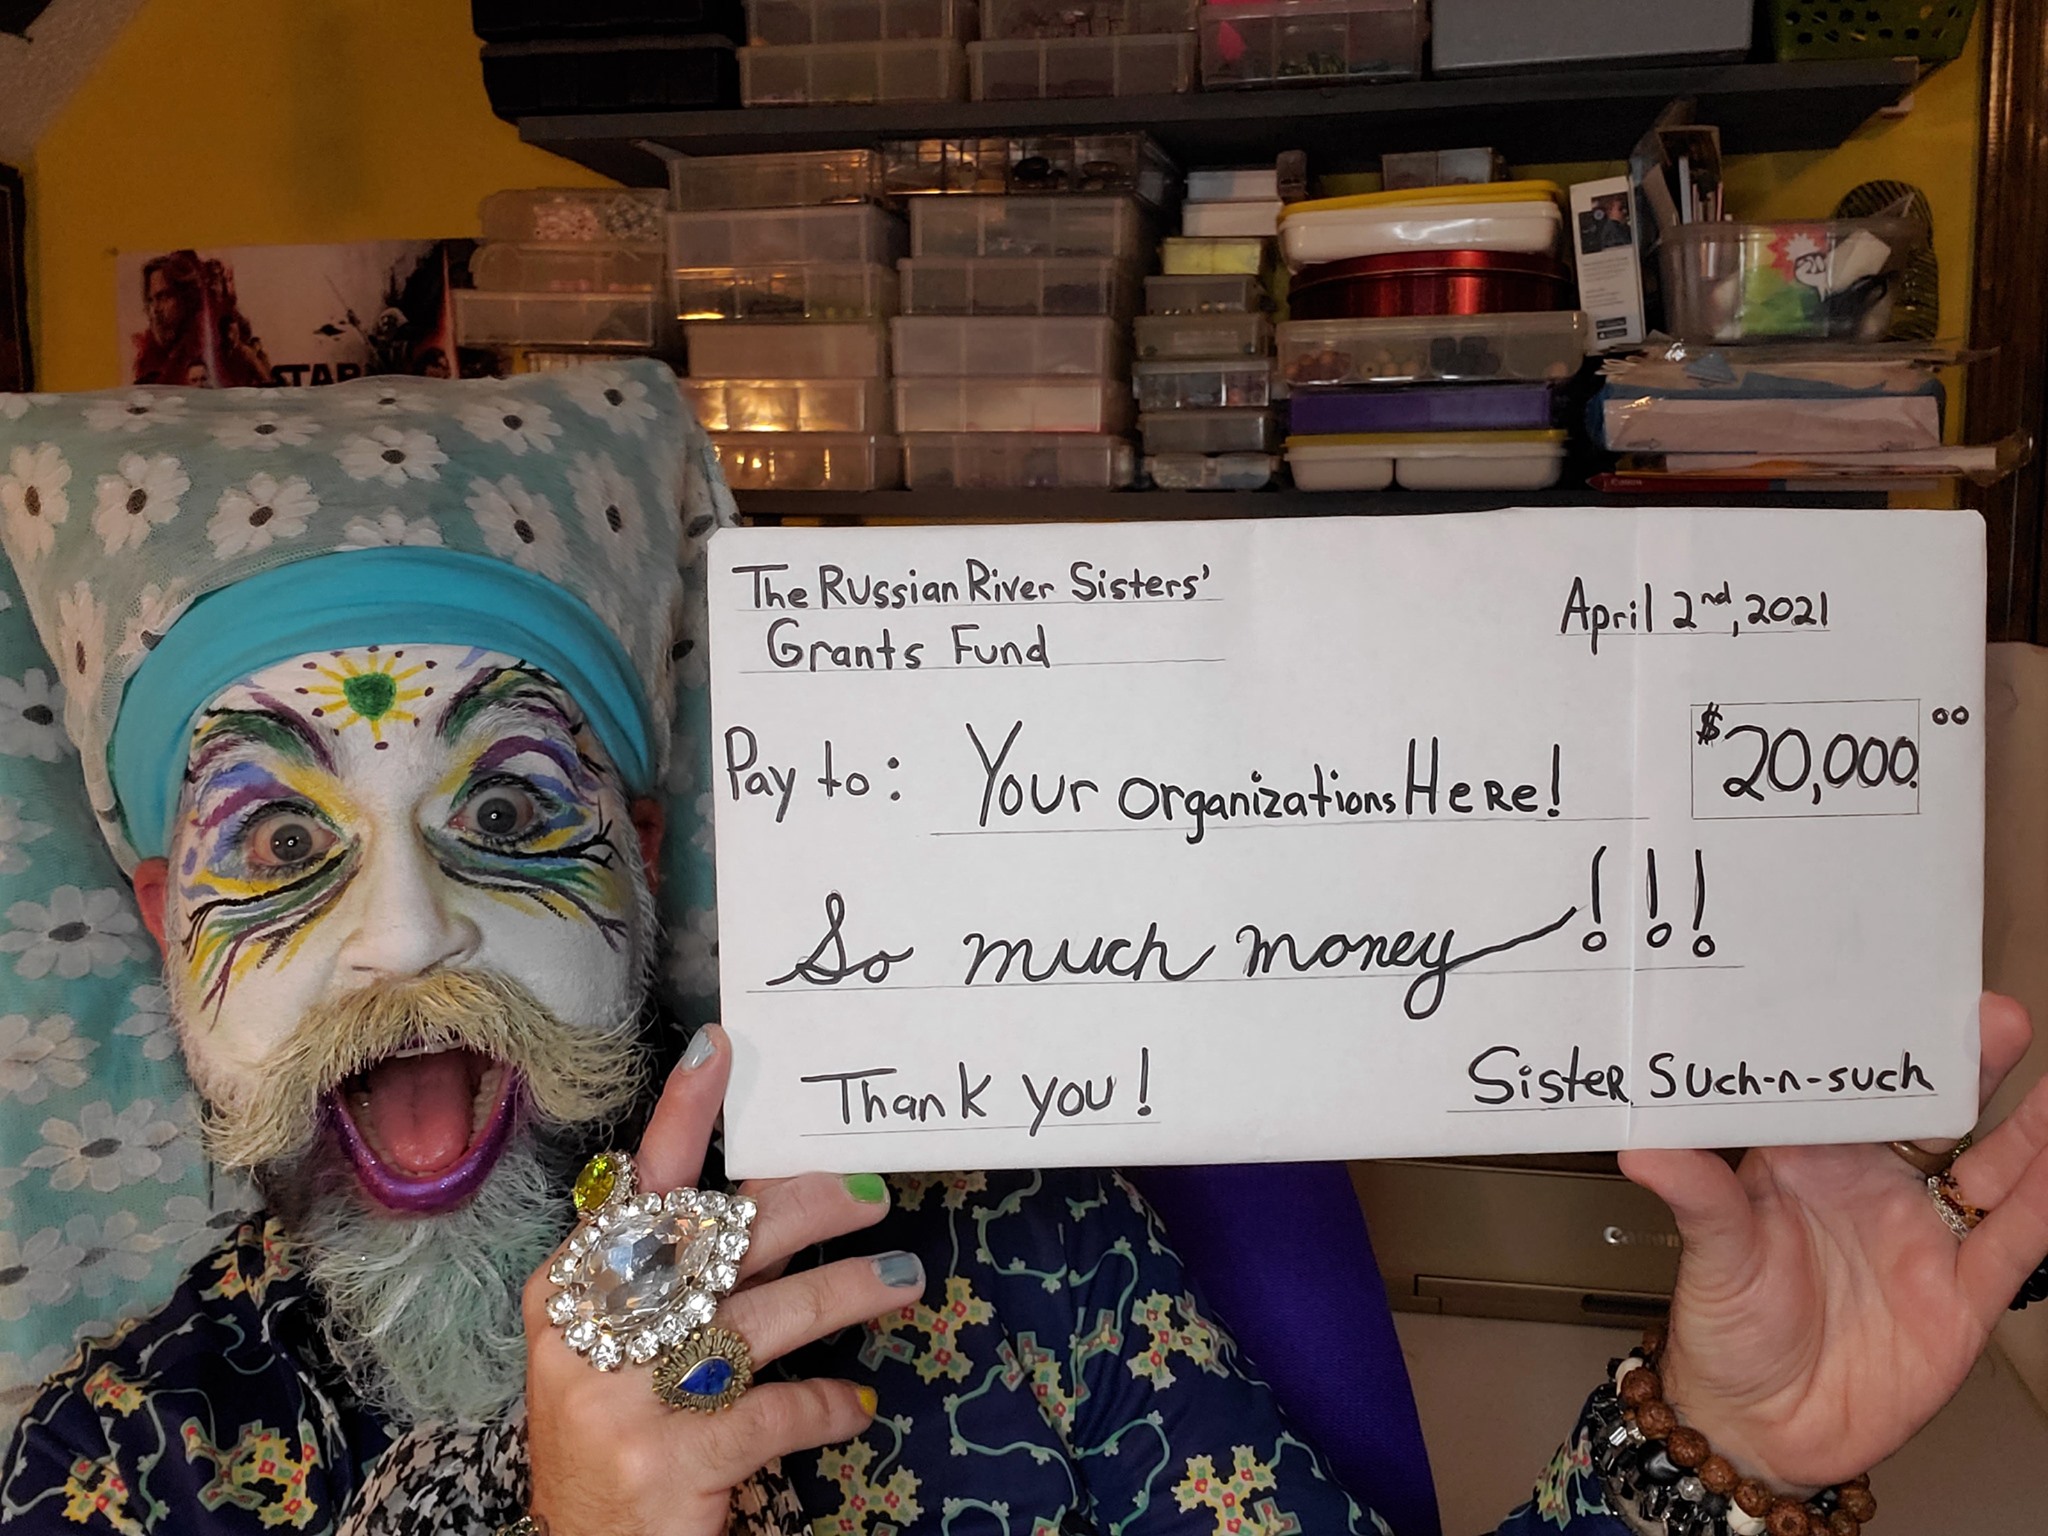 STAR
The Russian River Sisters'
Grants Fund
April 2nd, 2021
Pay to: Your Organizations Here!
$20,000.00
So much money!!!
Thank you!
Sister Such-n-such
Canon